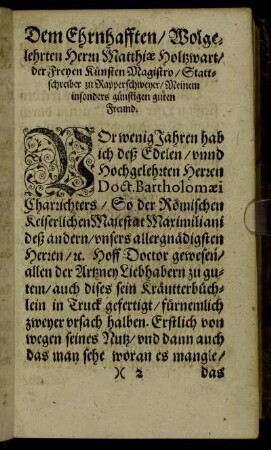 Dem Ehrnhafften / Wolge-
lehrten Herrn Matthiæ Holtzwart /
der Freyen Künsten Magistro / Statt-
schreiber zu Rapperschweyer / Meinem
insonders günstigen guten
Freund.
VOr wenig Jahren hab
ich deß Edelen / vnnd
Hochgelehrten Herren
Doct. Bartholomæi
Charrichters / So der Römischen
Keiserlichen Maiestat Maximiliani
deß andern / vnsers allergnädigsten
Herren / ꝛc. Hoff Doctor gewesen /
allen der Artzney Liebhabern zu gu-
tem / auch dises sein Kräutterbüch-
lein in Truck gefertigt / fürnemlich
zweyer vrsach halben. Erstlich von
wegen seines Nutz / vnd dann auch
das man sehe woran es mangle /
)( 2 das